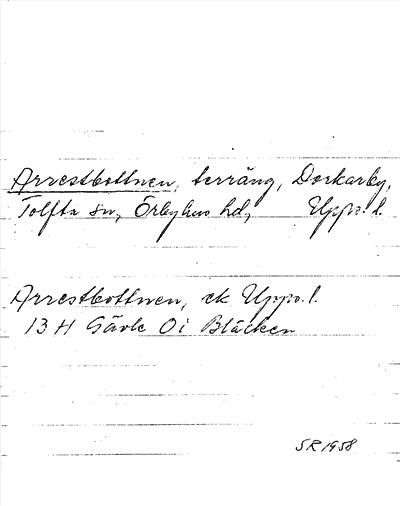 Arrestbottnen, terräng, Dorkarby,
Tolfta sn, Örbyhus hd, Upps. l.
Arrestbottnen, ek Upps. l.
13 H Gävle 0 i Bläcken
SR 1958